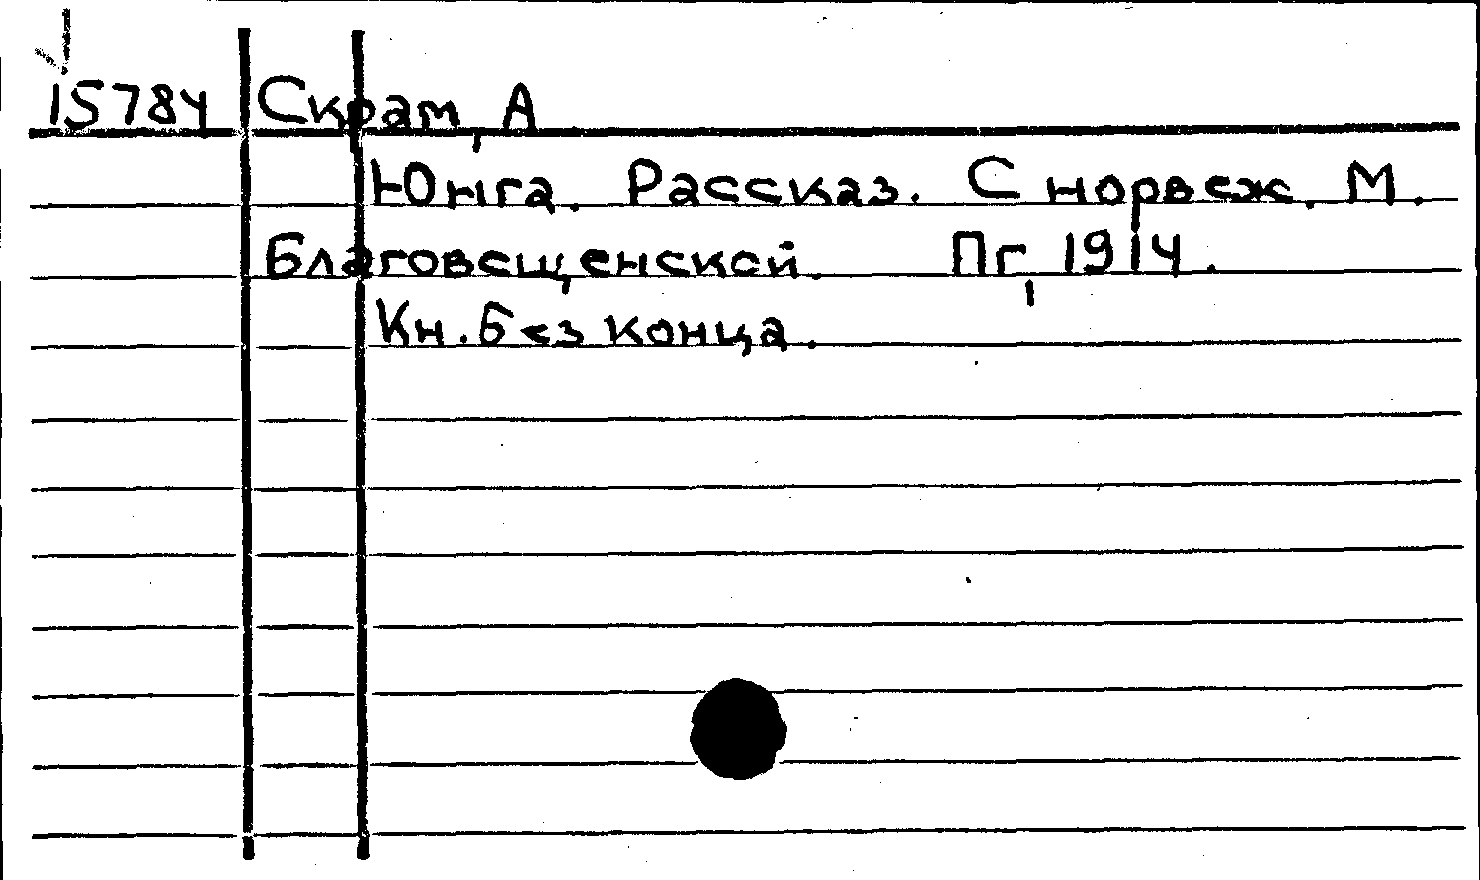 15784 Скрам, А
Юнга. Рассказ. С норвеж. М.
Благовещенской. Пг, 1914.
Кн. без конца.